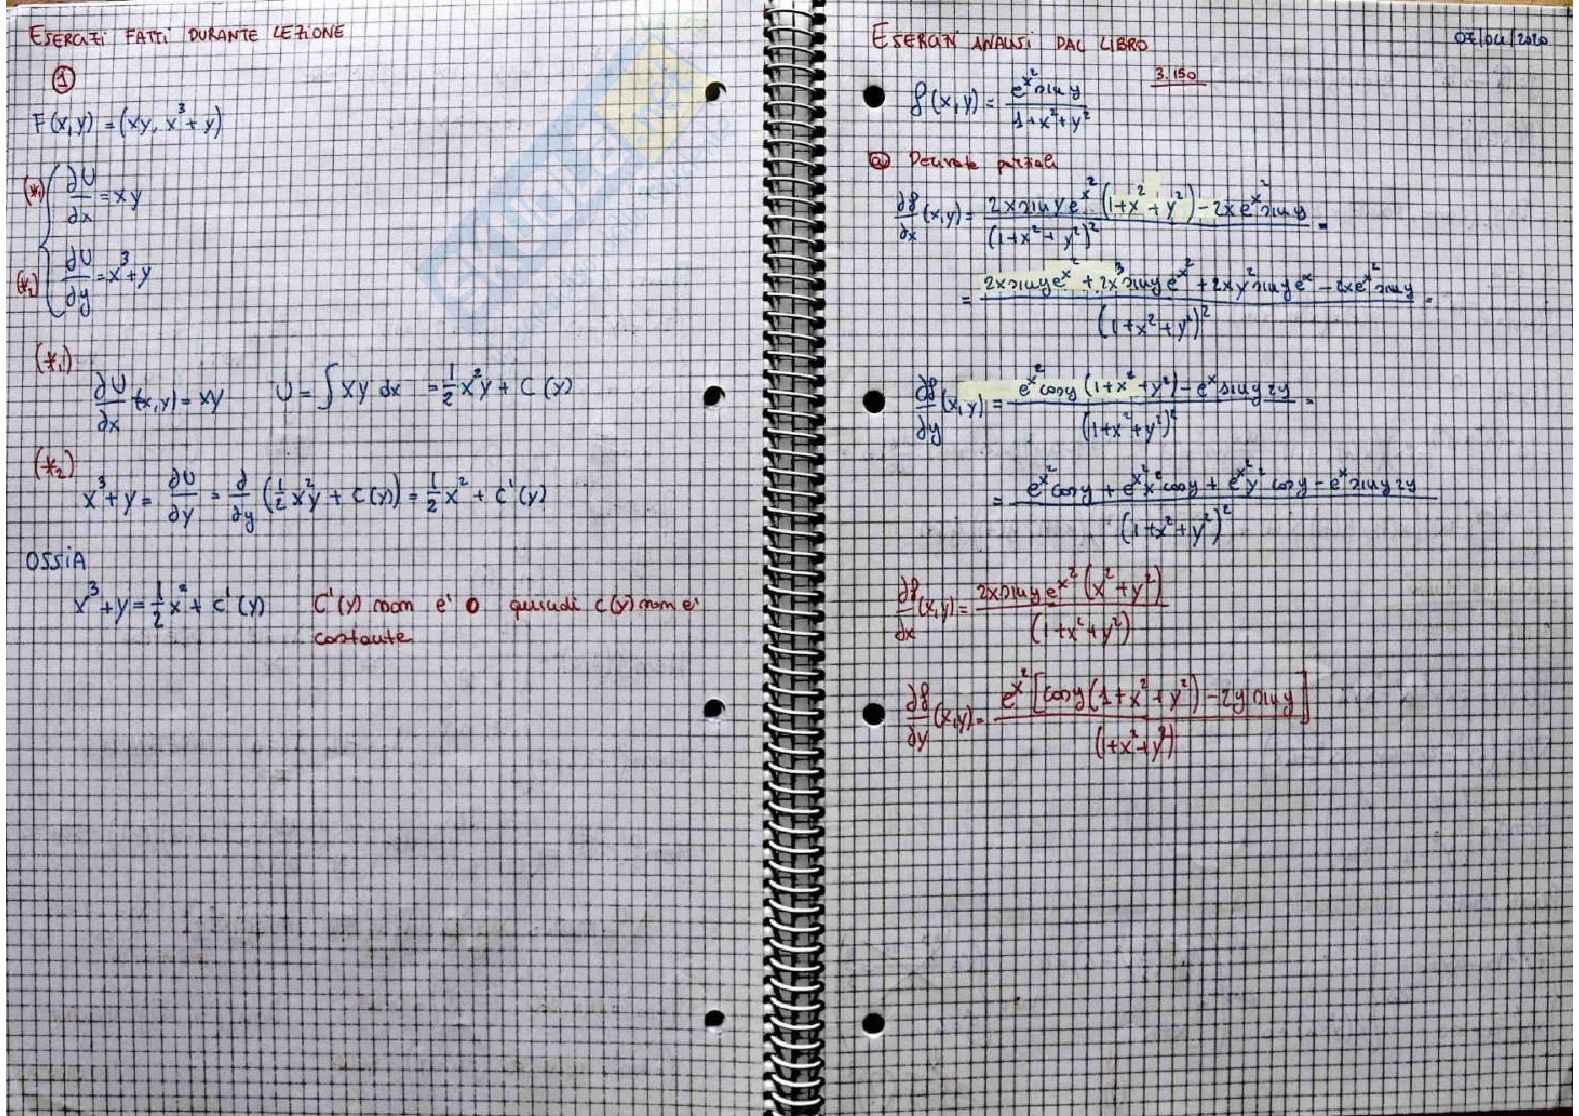 ESERCIZI FATTI DURANTE LEZIONE
1
F(x,y) = (xy, x³+y)
(*1) ∂U/∂x = xy
(*2) ∂U/∂y = x³+y
(*1)
∂U/∂x (x,y) = xy U = ∫ xy dx = 1/2 x²y + C(y)
(*2)
x³+y = ∂U/∂y = ∂/∂y (1/2 x²y + C(y)) = 1/2 x² + C'(y)
OSSIA
x³+y = 1/2 x² + C'(y) C'(y) non e' 0 quindi C(y) non e'
costante
ESERCIZI ANALISI DAL LIBRO 07/04/2020
3.150
f(x,y) = e^x² sin y / 1+x²+y²
a) Derivate parziali
∂f/∂x (x,y) = 2x sin y e^x² (1+x²+y²) - 2x e^x² sin y / (1+x²+y²)² =
= 2x sin y e^x² + 2x³ sin y e^x² + 2xy² sin y e^x² - 2x e^x² sin y / (1+x²+y²)² =
∂f/∂y (x,y) = e^x² cos y (1+x²+y²) - e^x² sin y 2y / (1+x²+y²)² =
= e^x² cos y + e^x² x² cos y + e^x² y² cos y - e^x² sin y 2y / (1+x²+y²)²
∂f/∂x (x,y) = 2x sin y e^x² (x²+y²) / (1+x²+y²)
∂f/∂y (x,y) = e^x² [cos y (1+x²+y²) - 2y sin y] / (1+x²+y²)
SKUOLA.net